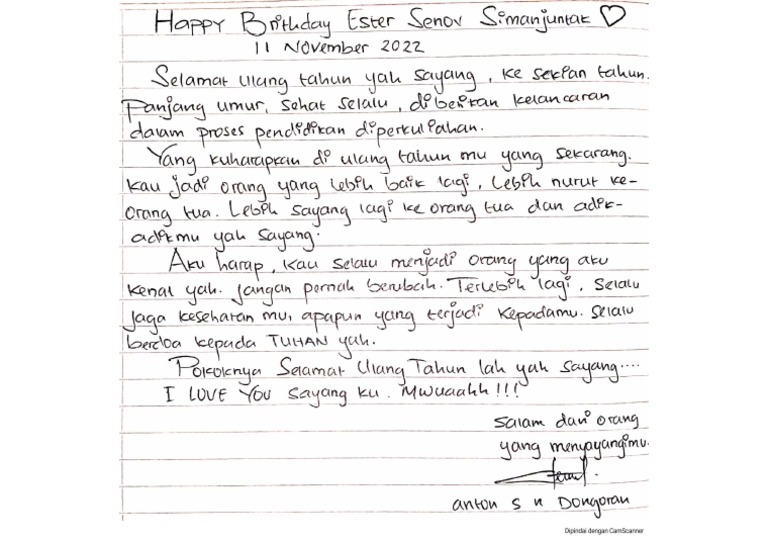 Happy Brithday Ester Senov Simanjuntak ♡
11 November 2022
Selamat ulang tahun yah sayang, ke sekian tahun.
Panjang umur, sehat selalu, diberikan kelancaran
dalam proses pendidikan diperkuliahan.
Yang kuharapkan di ulang tahun mu yang sekarang.
kau jadi orang yang lebih baik lagi, lebih nurut ke-
orang tua. Lebih sayang lagi ke orang tua dan adik-
adikmu yah sayang.
Aku harap, kau selalu menjadi orang yang aku
kenal yah. jangan pernah berubah. Terlebih lagi, selalu
jaga kesehatan mu, apapun yang terjadi kepadamu. selalu
berdoa kepada TUHAN yah.
Pokoknya Selamat Ulang Tahun lah yah sayang....
I LOVE YOU sayang ku. Mwuaahh!!!
salam dari orang
yang menyayangimu.
anton s n Dongoran
Dipindai dengan CamScanner